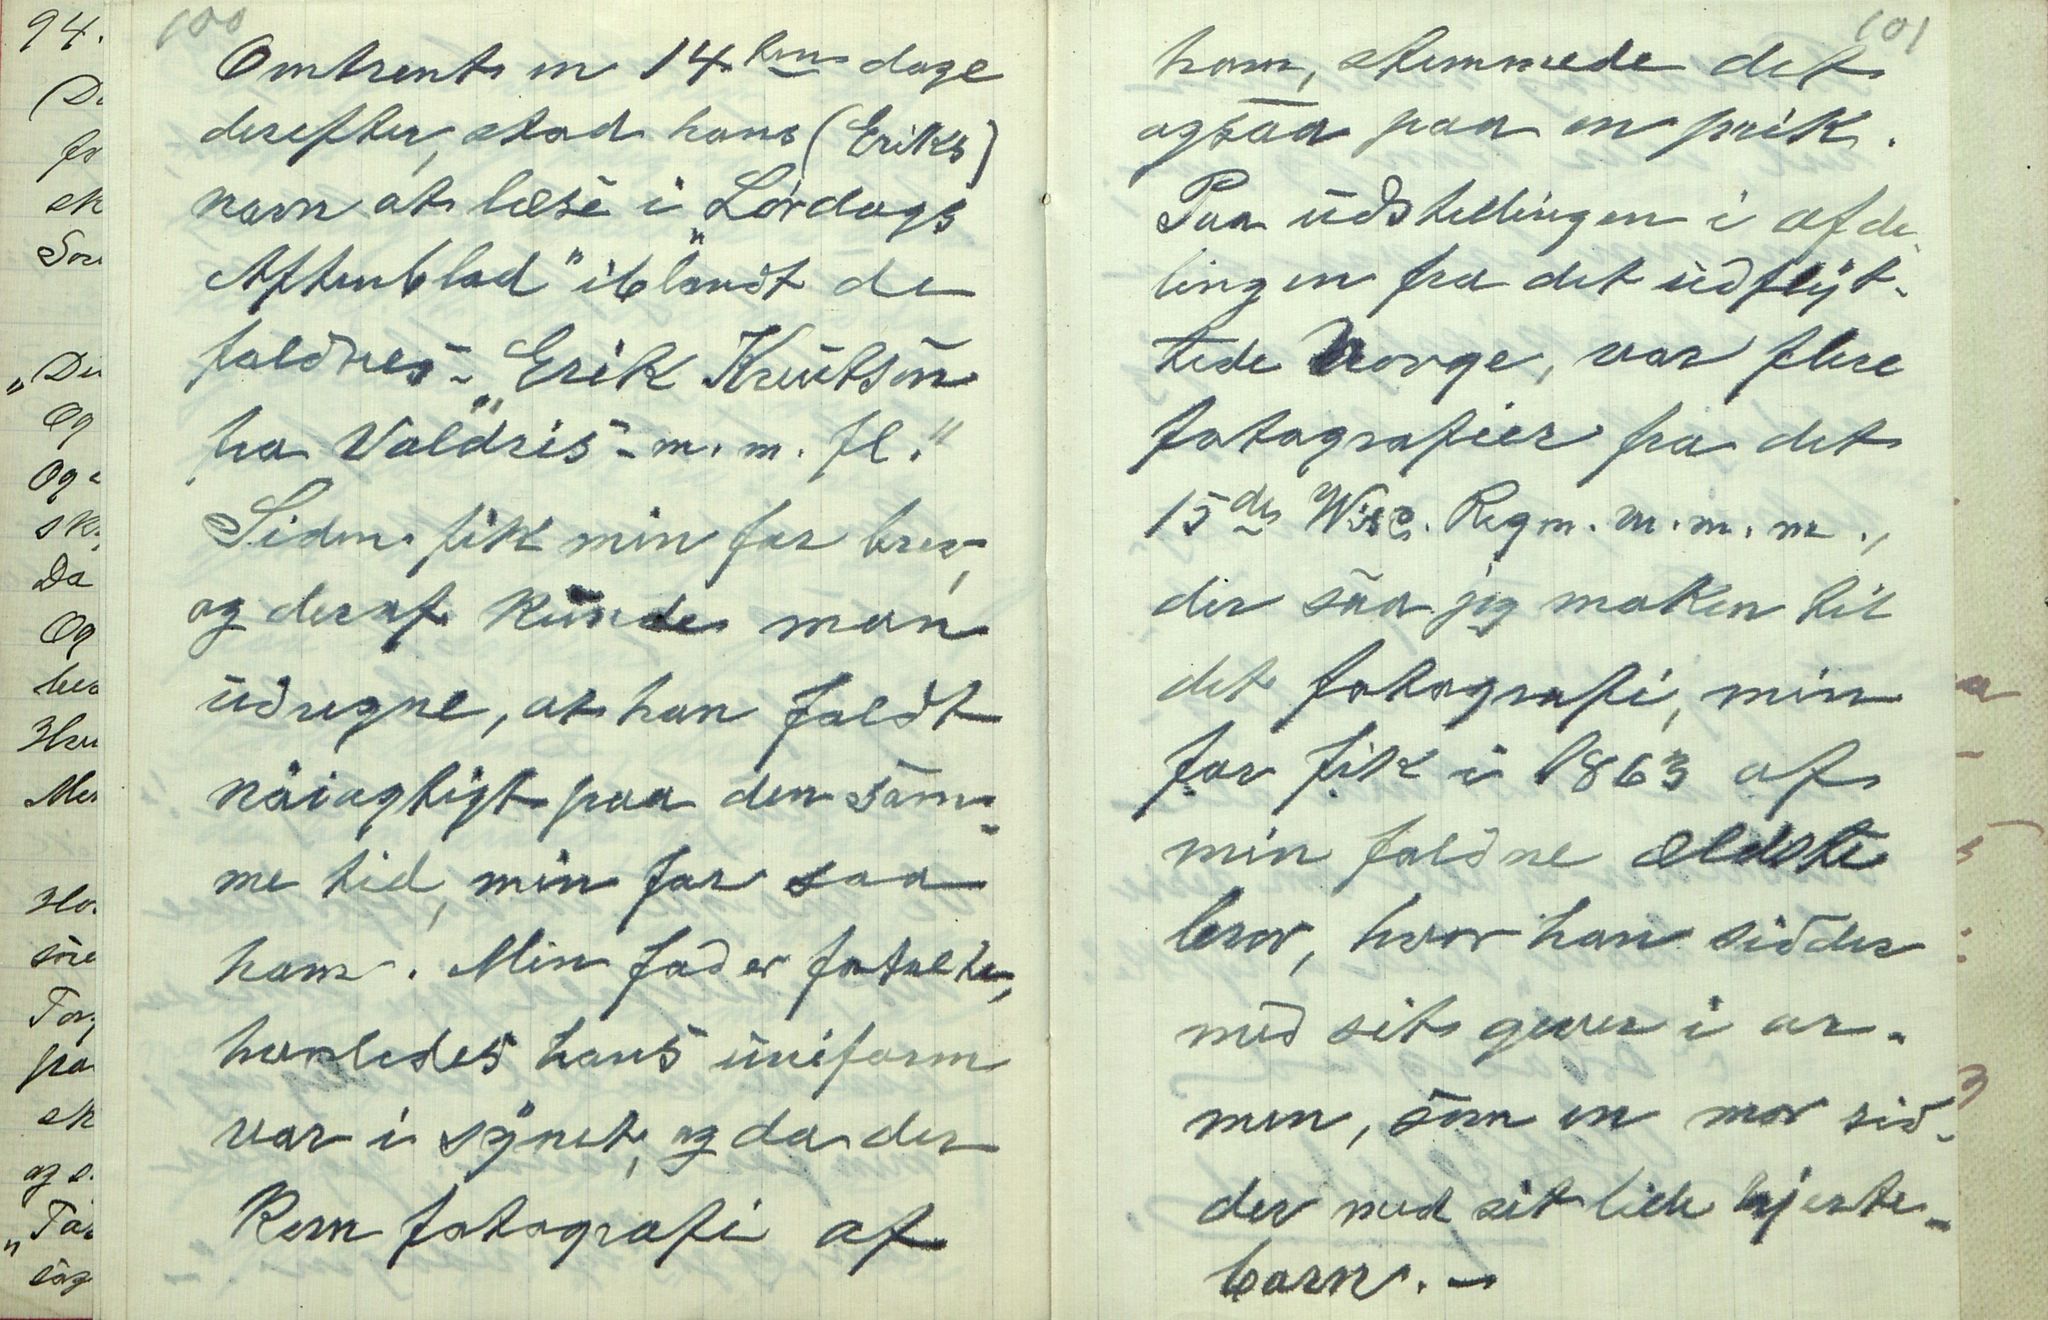 94.
100
Omtrent en 14 ten dage
derefter, stod hans (Eriks)
navn at læse i „Lørdags
Aftenblad" iblandt de
faldnes - „Erik Knutson
fra Valdris - m. m. fl."
Siden fik min far brev,
og deraf kunde man
udregne, at han faldt
nöiagtigt paa den sam-
me tid, min far saa
ham. Min fader fortalte,
hvorledes hans uniform
var i synet, og da der
kom fotografi af
101
ham, stemmede det
ogsaa paa en prik.
Paa udstellingen i afde-
lingen fra det udflyt-
tede Norge, var flere
fotografier fra det
15de Wisc. Regm. m. m. m.,
der saa jeg maken til
det fotografi, min
far fik i 1863 af
min faldne ældste
bror, hvor han sidder
med sit gevær i ar-
men, som en mor sid-
der med sit lille hjerte-
barn. -